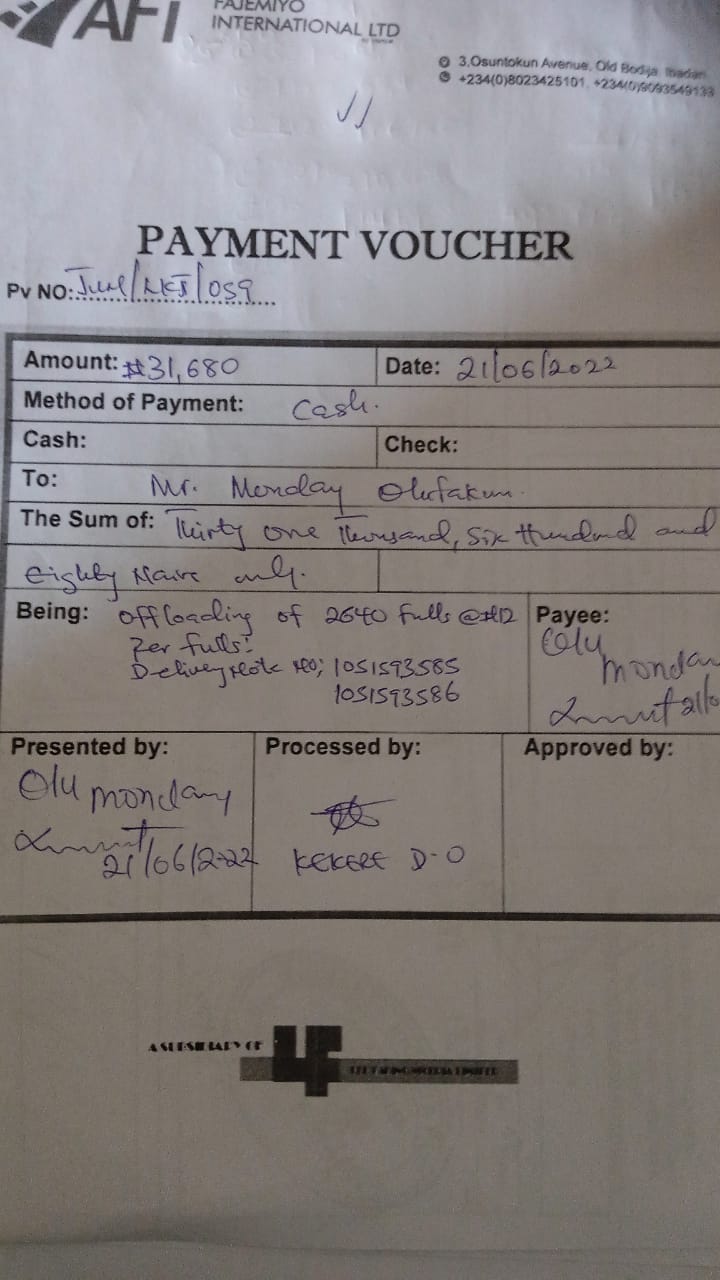 AFI
FAJEMIYO
INTERNATIONAL LTD
3,Osuntokun Avenue, Old Bodija, Ibadan
+234(0)8023425101, +234(0)9093549133
PAYMENT VOUCHER
Pv NO: June/NKJ/059
Amount: ₦31,680 Date: 21/06/2022
Method of Payment: Cash.
Cash: Check:
To: Mr. Monday Olufakun.
The Sum of: Thirty one Thousand, Six Hundred and
Eighty Naira only.
Being: Offloading of 2640 fulls @ ₦12 Payee:
Per fulls! Olu
Delivery Note No; 1051593585 Monday
1051593586 21/0
Presented by: Processed by: Approved by:
Olu monday
21/06/2022 KEKERE D-O
A SUBSIDIARY OF